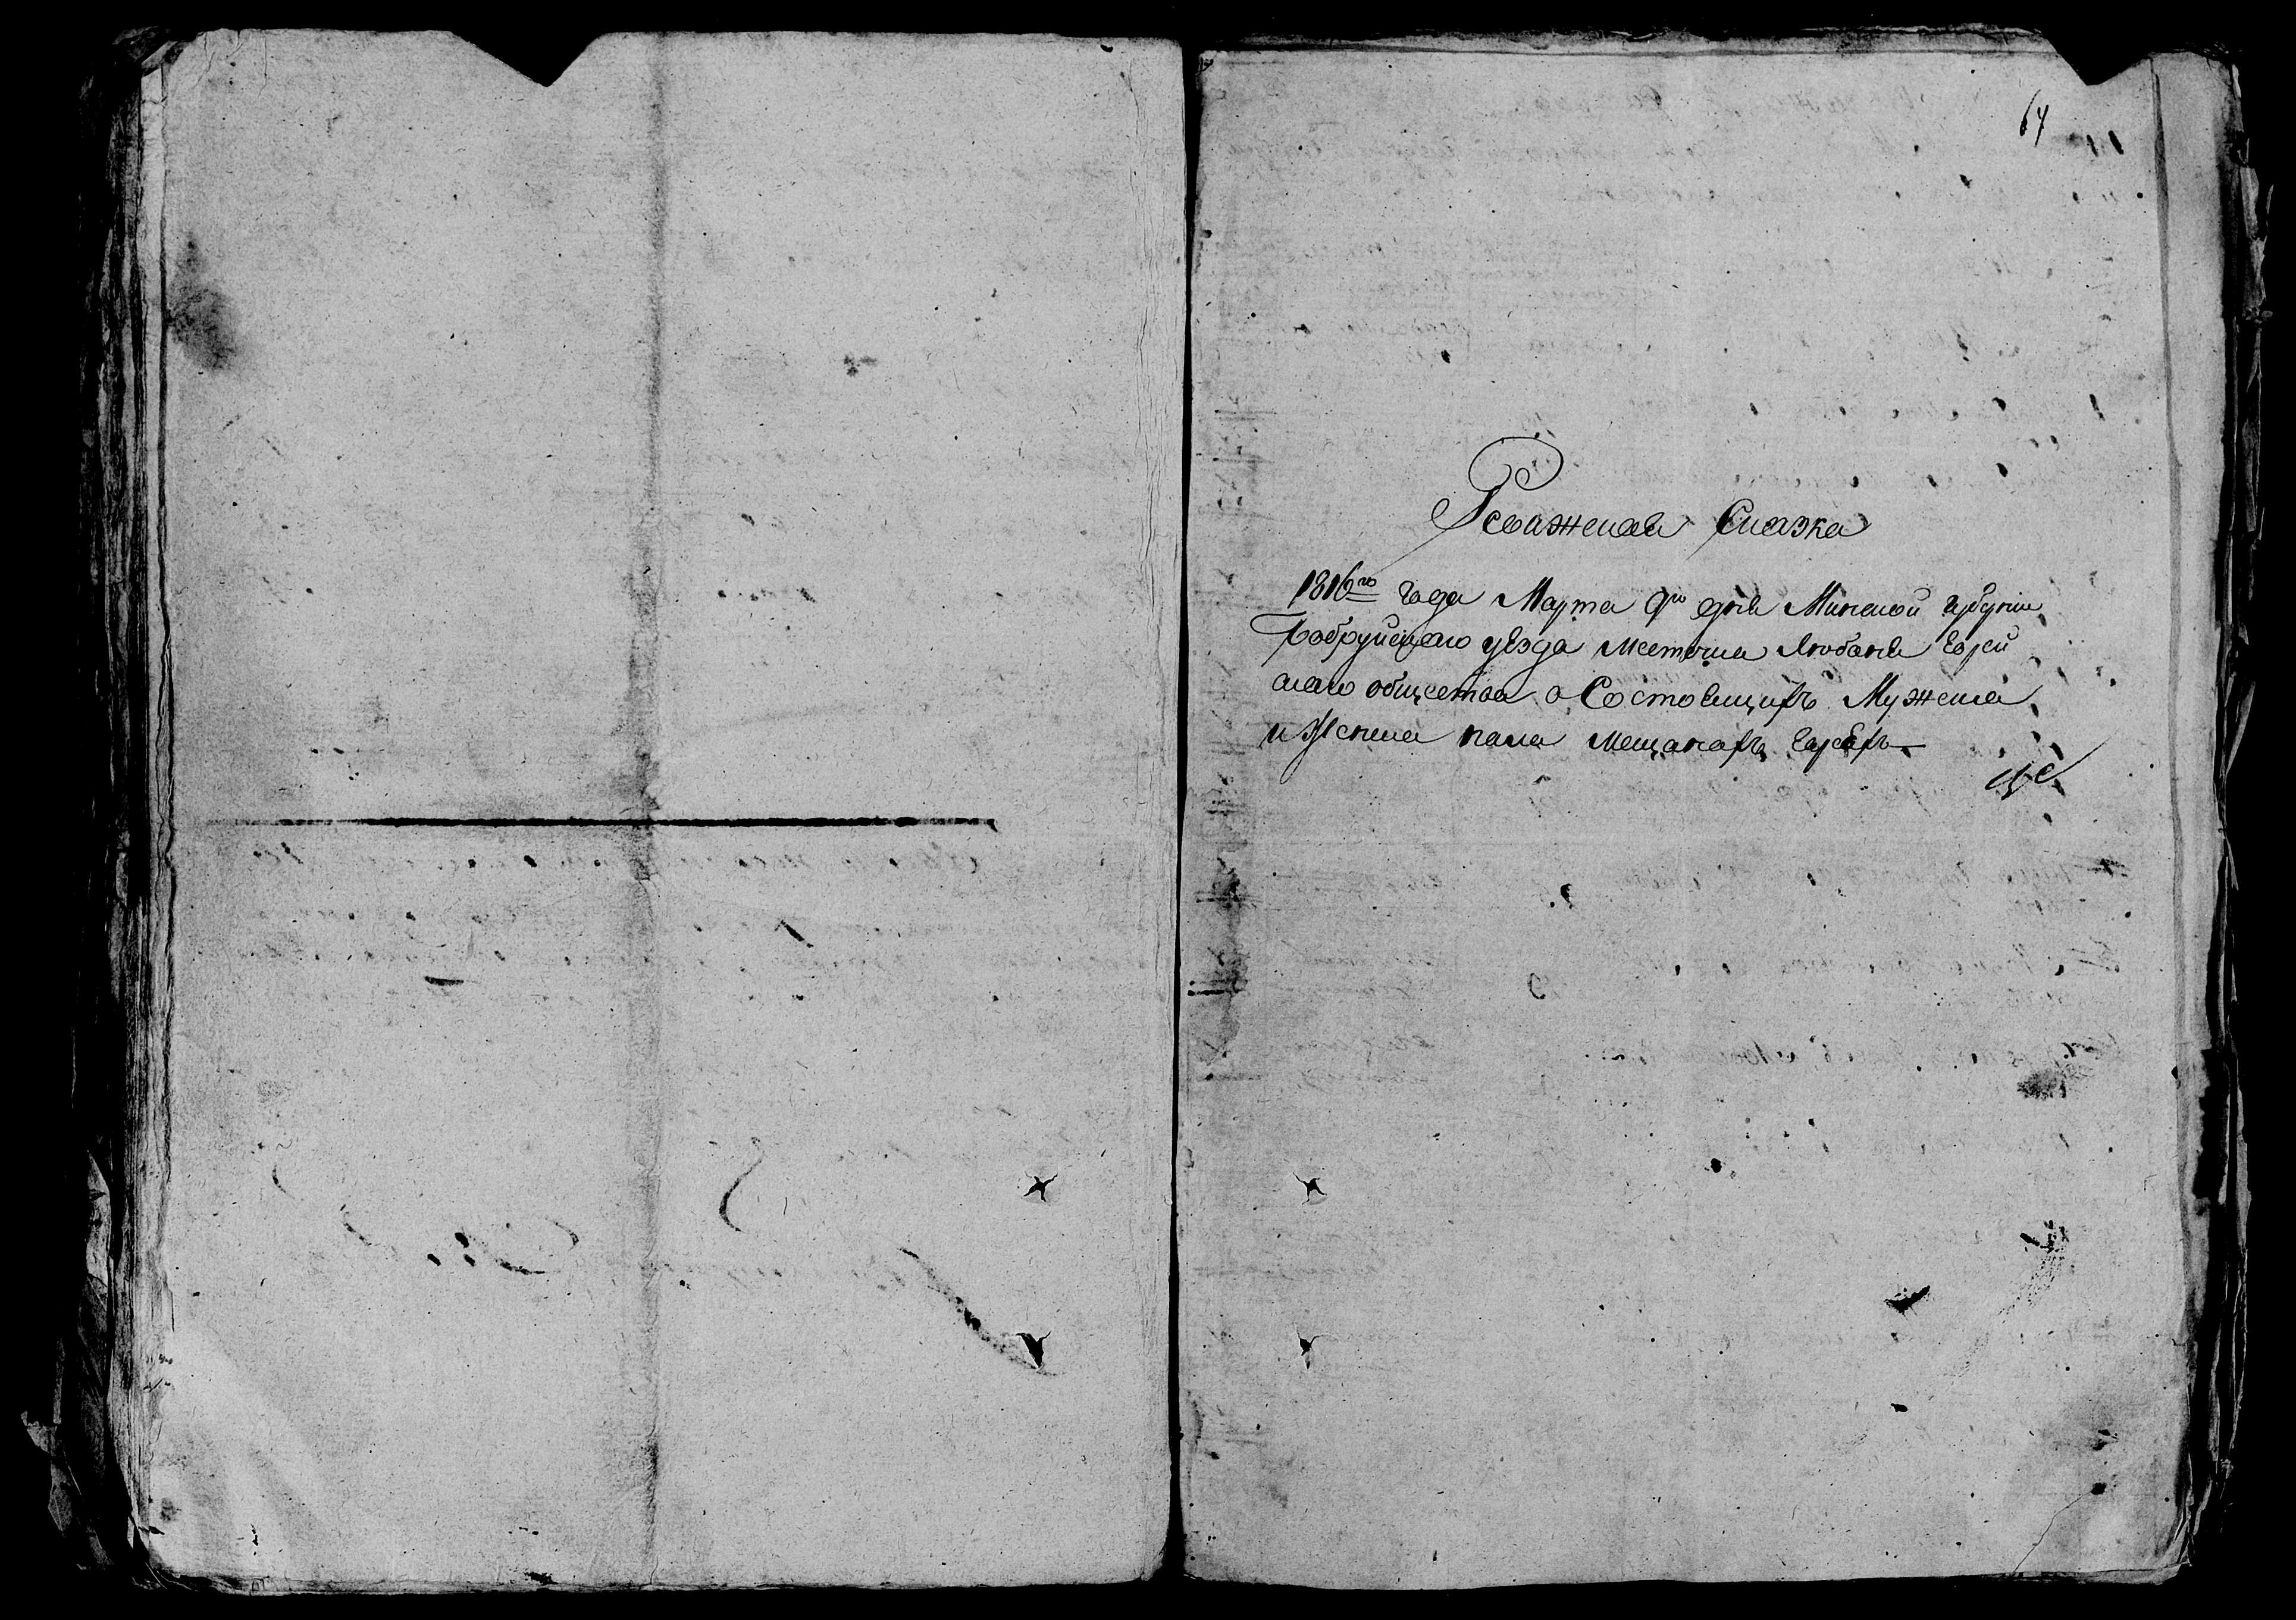 64
Ревижская Сказка
1816го года Марта 9го дня Минской губернии
Бобруйскаго уезда местечка Любаня Еврей
скаго общества о Состоящихъ Мужеска
и Женска пола мещанахъ Евреяхъ